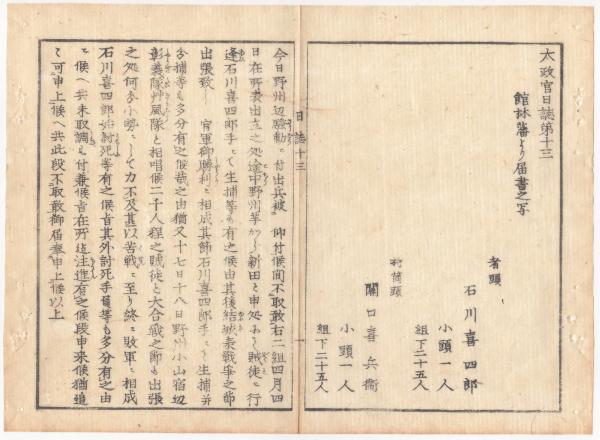 太政官日誌第十三
館林藩より届書之写
者頭
石川喜四郎
小頭一人
組下二十五人
物頭
関口喜兵衛
小頭一人
組下二十五人
日誌十三
今日野州辺騒動ニ付出兵被　仰付候間不取敢右二組四月四
日在所表出立之処途中野州筋新田と申処ニて賊徒ニ行
逢石川喜四郎手ニて生捕等も有之候由其後結城表戦争之節
出張致し　官軍御勝利ニ相成其節石川喜四郎手ニて生捕并
分捕等も多分有之候哉之由猶又十七日十八日野州小山宿辺
彰義隊艸風隊と相唱候二千人程之賊徒と大合戦之節も出張
之処何分小勢ニして力不及甚以苦戦ニ至り終ニ敗軍ニ相成
石川喜四郎始討死等有之候旨其外討死手負等も多分有之由
ニ候へ共未取調も付兼候旨在所ゟ注進有之候段申来候猶追
々可申上候へ共此段不取敢御届奉申上候以上